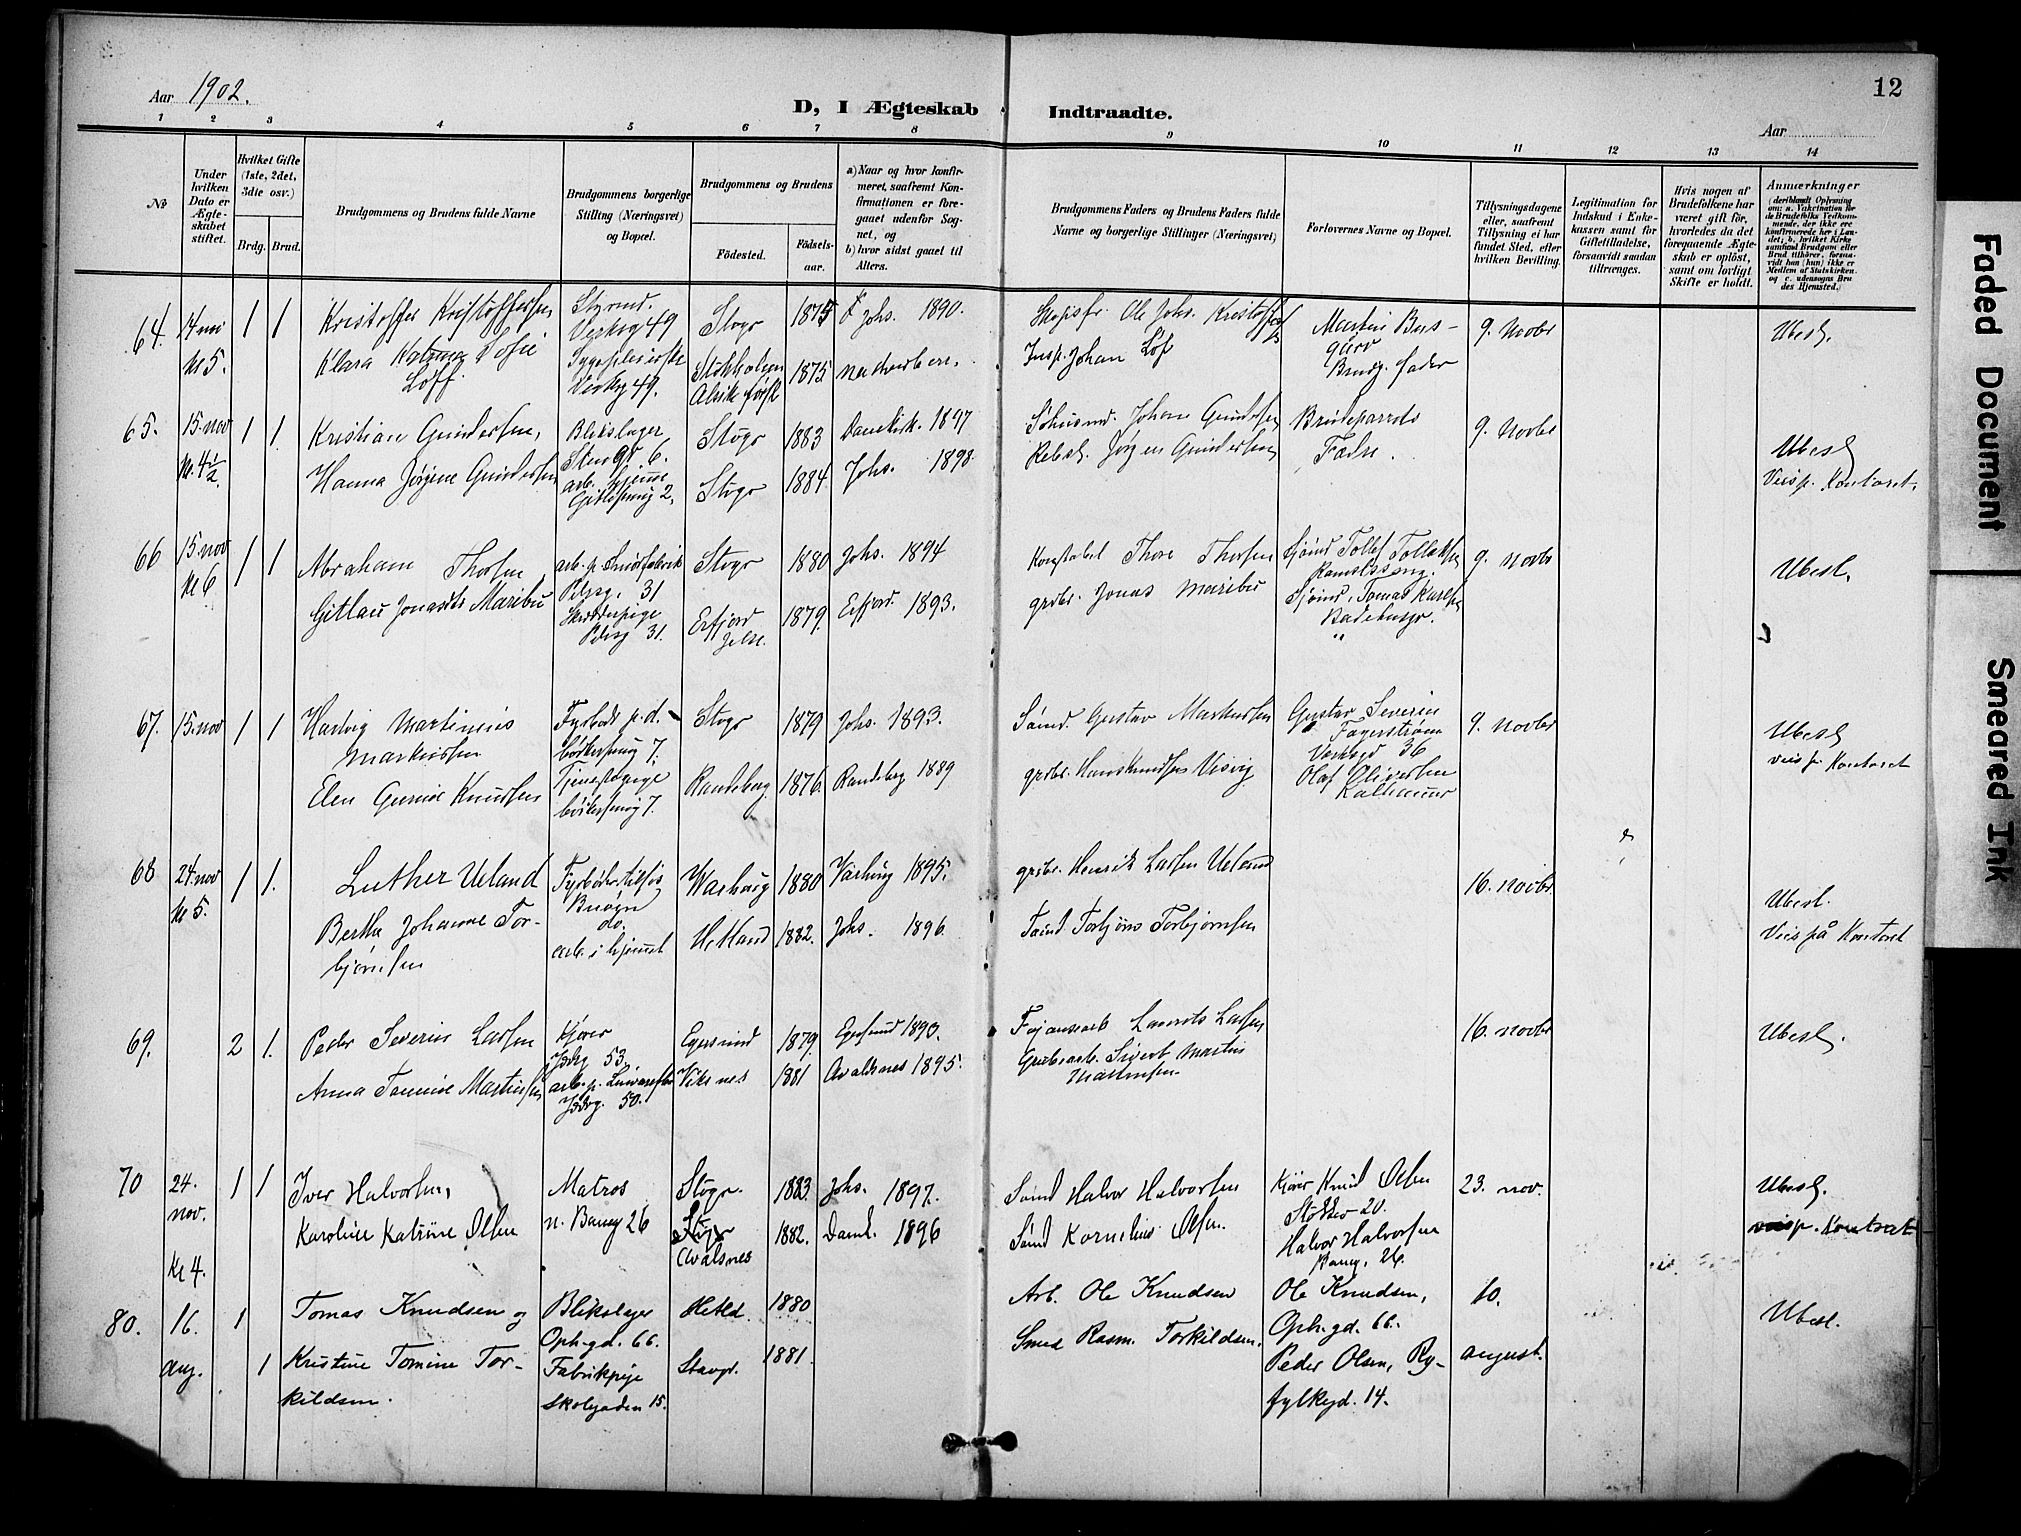 Aar 1902.
D, I Ægteskab Indtraadte.
12
Aar
1 2 3 4 5 6 7 8 9 10 11 12 13 14
№
Under hvilken Dato er Ægteskabet stiftet.
Hvilket Gifte (1ste, 2det, 3die osv.)
Brdg. Brud.
Brudgommens og Brudens fulde Navne
Brudgommens borgerlige Stilling (Næringsvei) og Bopæl.
Brudgommens og Brudens
Fødested.
Fødselsaar.
a) Naar og hvor konfirmeret, saafremt Konfirmationen er foregaaet udenfor Sognet, og
b) hvor sidst gaaet til Alters.
Brudgommens Faders og Brudens Faders fulde Navne og borgerlige Stillinger (Næringsvei)
Forlovernes Navne og Bopæl.
Tillysningsdagene eller, saafremt Tillysning ei har fundet Sted, efter hvilken Bevilling.
Legitimation for Indskud i Enkekassen samt for Giftetilladelse, forsaavidt saadan tiltrænges.
Hvis nogen af Brudefolkene har været gift før, hvorledes da det foregaaende Ægteskab er opløst, samt om lovligt Skifte er holdt.
Anmærkninger
(deriblandt Oplysning om: a. Vakcination for de Brudefolks Vedkommende, der ikke ere konfirmerede her i Landet; b. hvilket Kirkesamfund Brudgom eller Brud tilhører, forsaavidt han (hun) ikke er Medlem af Statskirken og c. udensogns Brudes Hjemsted.)
64. 14 nov Kl 5. 1 1
Kristoffer Kristoffersen
Klara Katrina Sofie Löff.
Styrmd. Verksg 49
Verksg 49.
Stvgr 1875 Johs. 1890.
Stokholm 1875
Ole Johs. Kristoffersen
Insp. Johan Löf
Martin
Brudg. Fader
9. Novbr
Ubesl.
65. 15. nov Kl. 4 1/2. 1 1.
Kristian Gundersen,
Hanna Jørgine Gundersen
Blikslager
6.
arb. hjemme
2,
Stvgr 1883 Domkirk. 1897
Stvgr 1884 Johs. 1898.
Johan Gundersen
Rebsl. Jørgen Gundersen
Brudeparrets Fædre.
9. Novbr
Ubesl
Vies p. Kontoret.
66 15. nov Kl 6 1 1
Abraham Thorsen
Gitlau Jonasdt Maribu
Pedersg. 31
Pedersg 31.
Stvgr 1880 Johs. 1894
Erfjord Jelse. 1879. Erfjord. 1893.
Konstabel Thore Thorsen
grdbr. Jonas Maribu
Sjömd Tollef Tollefsen
Sjömd. Tomas Karlsen
"
9. Novbr
Ubesl.
67. 15. nov 1 1
Hartvig Martinius Markussen
Elen Gurine Knudsen
Fyrbøder p. d.
7.
Tjenestepige
7.
Stvgr 1879 Johs. 1893.
Randeberg 1876. Randebg 1889
Sömd. Gustav Markussen
grdbr. Hans Knudsen Visvig
Gustav Severin Fagerström
Verksgd 36
Olaf Oliversen
9. Novbr
Ubesl
vies p. Kontoret
68 24. nov Kl 5. 1 1.
Luther Ueland
Bertha Johanne Torbjørnsen
Fyrbøder tilsjøs
do.
arb. i hjemmet
Varhaug 1880 Varhaug 1895.
Hetland 1882. Johs. 1896.
grdbr. Henrik Larsen Ueland
Sömd Torbjörn Torbjørnsen
16. Novbr.
Ubesl.
Vies på Kontoret
69. 2 1.
Peder Severin Larsen
Anna Tomine Martinsen
Kjører
53.
50.
Egersund 1879. Egersund 1893.
Viksnes 1881 Avaldsnes 1895.
Fajansearb Laurits Larsen
Grubearb. Sivert Martin Martinsen
16. Novbr
Ubesl.
70 24. nov. Kl 4. 1 1
Iver Halvorsen,
Karoline Katrine Olsen
Matros
n. Baneg 26
Stvgr. 1883. Johs. 1897.
Stvgr Avalsnes 1882. Domk. 1896
Sömd Halvor Halvorsen
Sömd Kornelius Olsen.
Kjører Knud Olsen
20.
Halvor Halvorsen
Baneg. 26.
23. nov.
Ubesl.
vies p. Kontoret
80. 16. aug. 1 1
Tomas Knudsen og
Kristine Tomine Torkildsen.
Blikslager
Oph.gd. 66.
Fabrikpige
Skolegaden 15.
Hetld. 1880
Stavgr. 1881.
Arb. Ole Knudsen
Smed Rasm. Torkildsen.
Ole Knudsen,
Oph.gd. 66.
Peder Olsen, Ryfylkegd. 14.
10. august.
Ubesl.
Faded Document
Smeared Ink